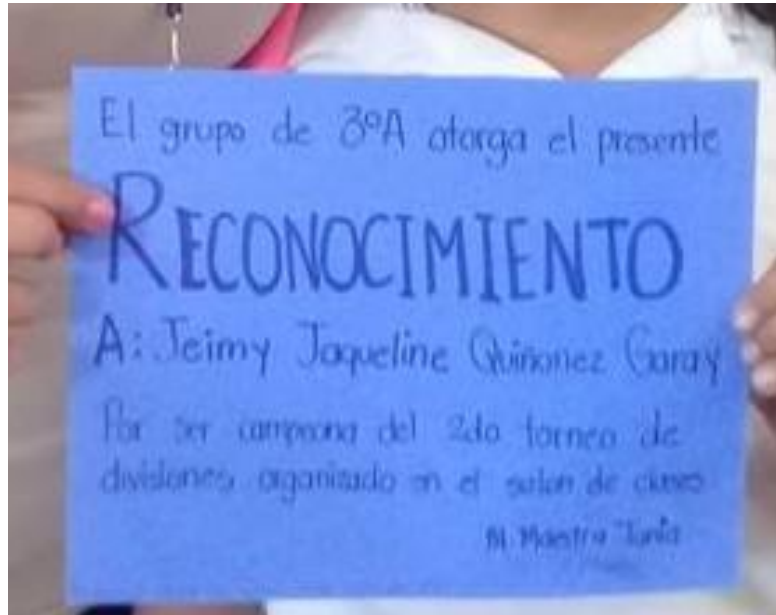 El grupo de 3ºA otorga el presente
RECONOCIMIENTO
A: Jeimy Jaqueline Quiñonez Garay
Por ser campeona del 2do torneo de
divisiones organizado en el salon de clases
Maestra Tania